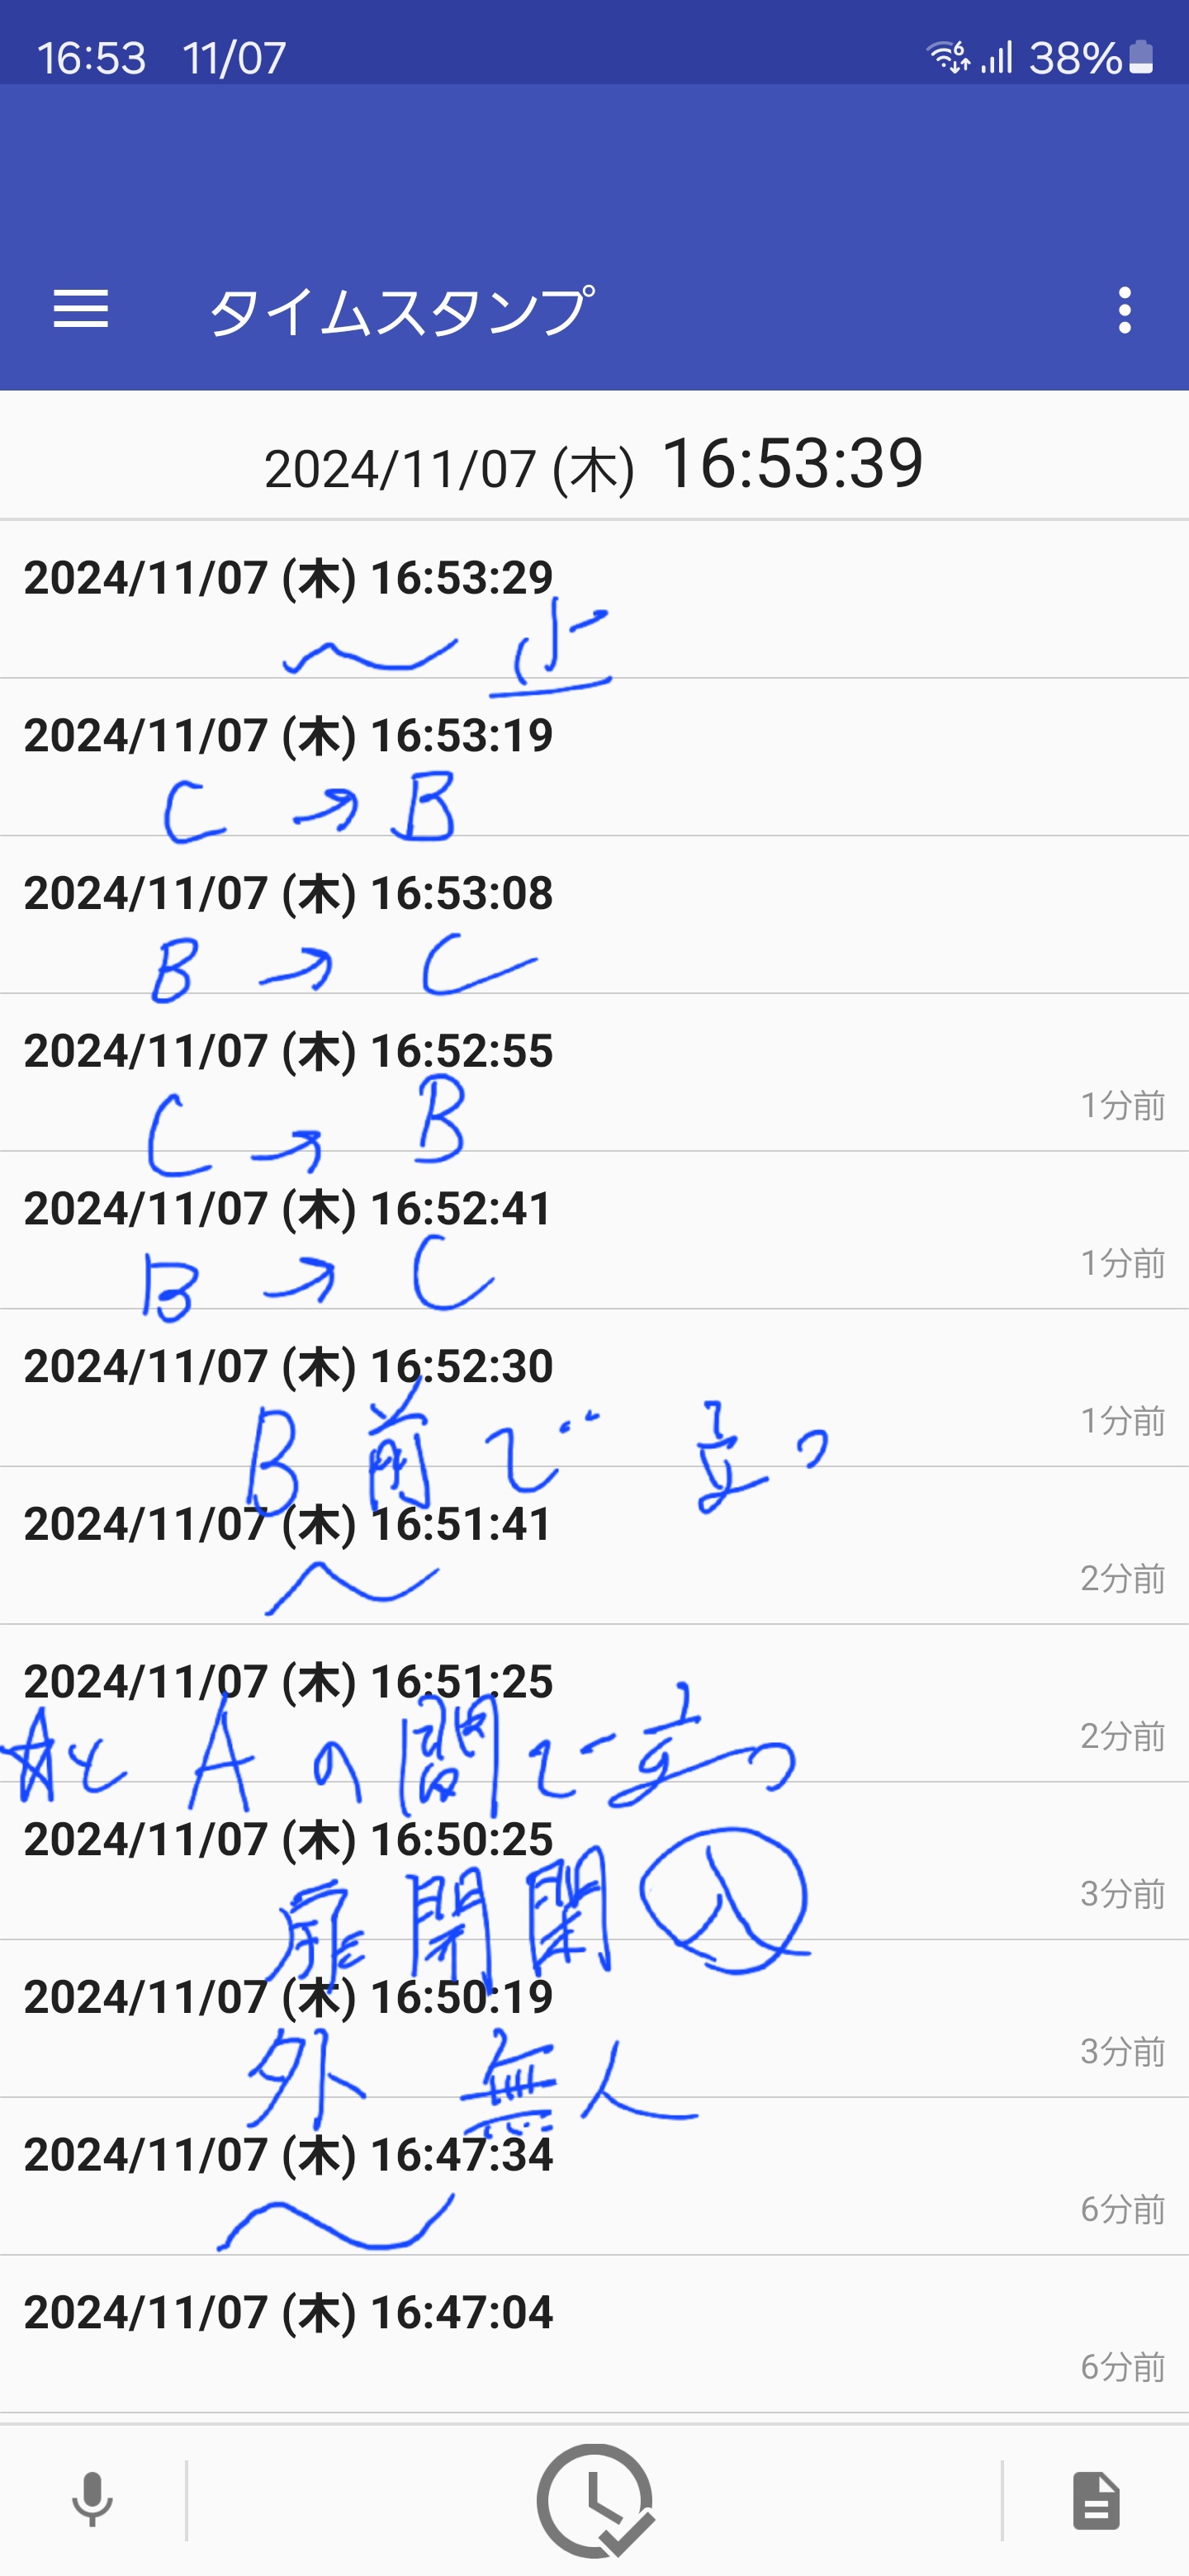 16:53 11/07 38%
タイムスタンプ
2024/11/07 (木) 16:53:39
2024/11/07 (木) 16:53:29
〜 止
2024/11/07 (木) 16:53:19
C → B
2024/11/07 (木) 16:53:08
B → C
2024/11/07 (木) 16:52:55
1分前
C → B
2024/11/07 (木) 16:52:41
1分前
B → C
2024/11/07 (木) 16:52:30
1分前
B 前で 立つ
2024/11/07 (木) 16:51:41
2分前
〜
2024/11/07 (木) 16:51:25
2分前
☆と A の間で立つ
2024/11/07 (木) 16:50:25
3分前
扉 開閉 入
2024/11/07 (木) 16:50:19
3分前
外 無人
2024/11/07 (木) 16:47:34
6分前
〜
2024/11/07 (木) 16:47:04
6分前